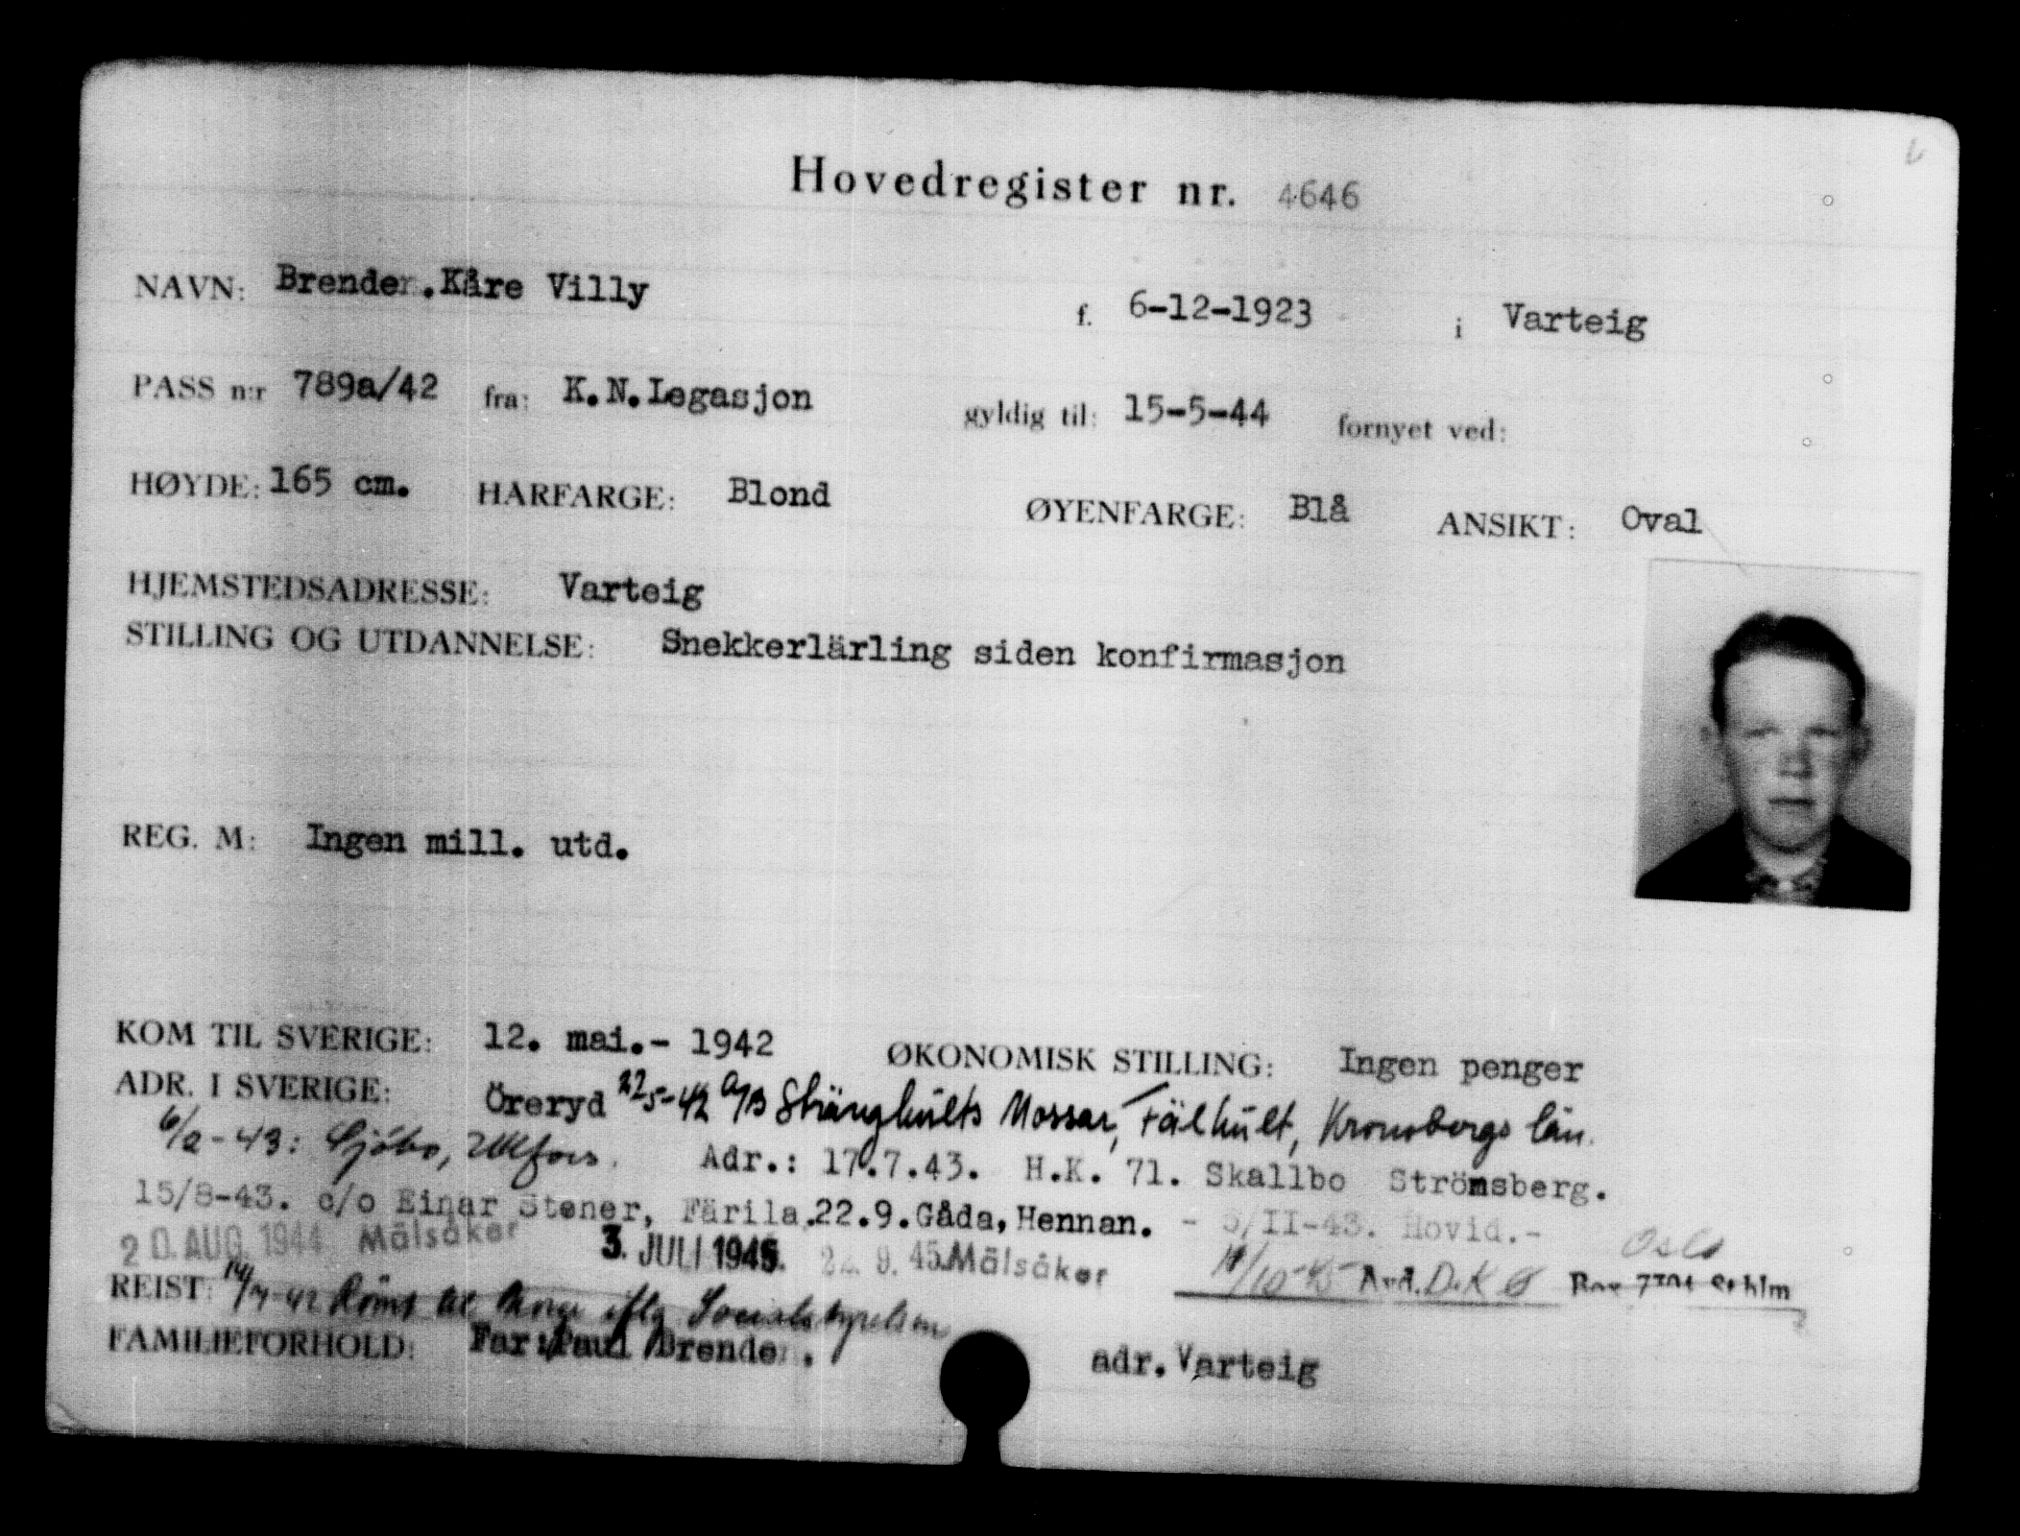 Hovedregister nr. 4646
NAVN: Brender.Kåre Villy f. 6-12-1923 i Varteig
PASS n:r 789a/42 fra: K.N.Legasjon gyldig til: 15-5-44 fornyet ved:
HØYDE: 165 cm. HARFARGE: Blond ØYENFARGE: Blå ANSIKT: Oval
HJEMSTEDSADRESSE: Varteig
STILLING OG UTDANNELSE: Snekkerlärling siden konfirmasjon
REG. M: Ingen mill. utd.
KOM TIL SVERIGE: 12. mai.- 1942 ØKONOMISK STILLING: Ingen penger
ADR. I SVERIGE: Öreryd 22/5-42 A/B Stänghults Mossar, Fälhult, Kronobergs län.
6/2-43: Sjöbo, Adr.: 17.7.43. H.K. 71. Skallbo Strömsberg.
15/8-43. c/o Einar Stener, Färila.22.9.Gåda, Hennan. - 5/II-43. Hovid.-
20. AUG. 1944 Mälsåker 3. JULI 1945. 22. 9. 45.Mälsåker 11/10-45 Avd. D.K.Ø Box 7704 Sthlm Oslo
REIST: 14/7-42 Rømt til Norge iflg Socialstyrelsen
FAMILIEFORHOLD: Far: Paul Brender. adr. Varteig